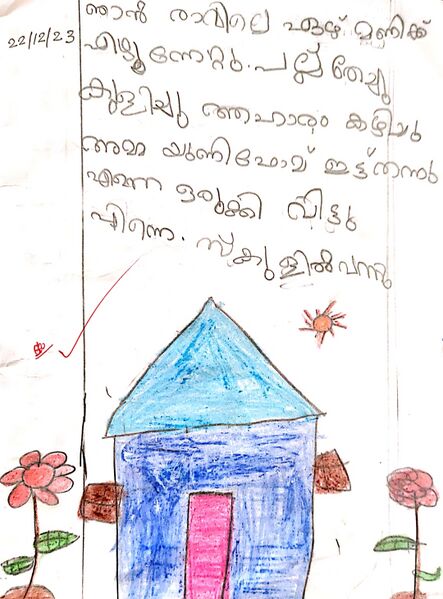 22/12/23
ഞാൻ രാവിലെ ഏഴ് മണിക്ക്
എഴുന്നേറ്റു. പല്ല് തേച്ചു
കുളിച്ചു ആഹാരം കഴിച്ചു
അമ്മ യുണിഫോമ് ഇട്ട്തന്നു
എന്നെ ഒരുക്കി വിട്ടു
പിന്നെ. സ്കുളിൽ വന്നു